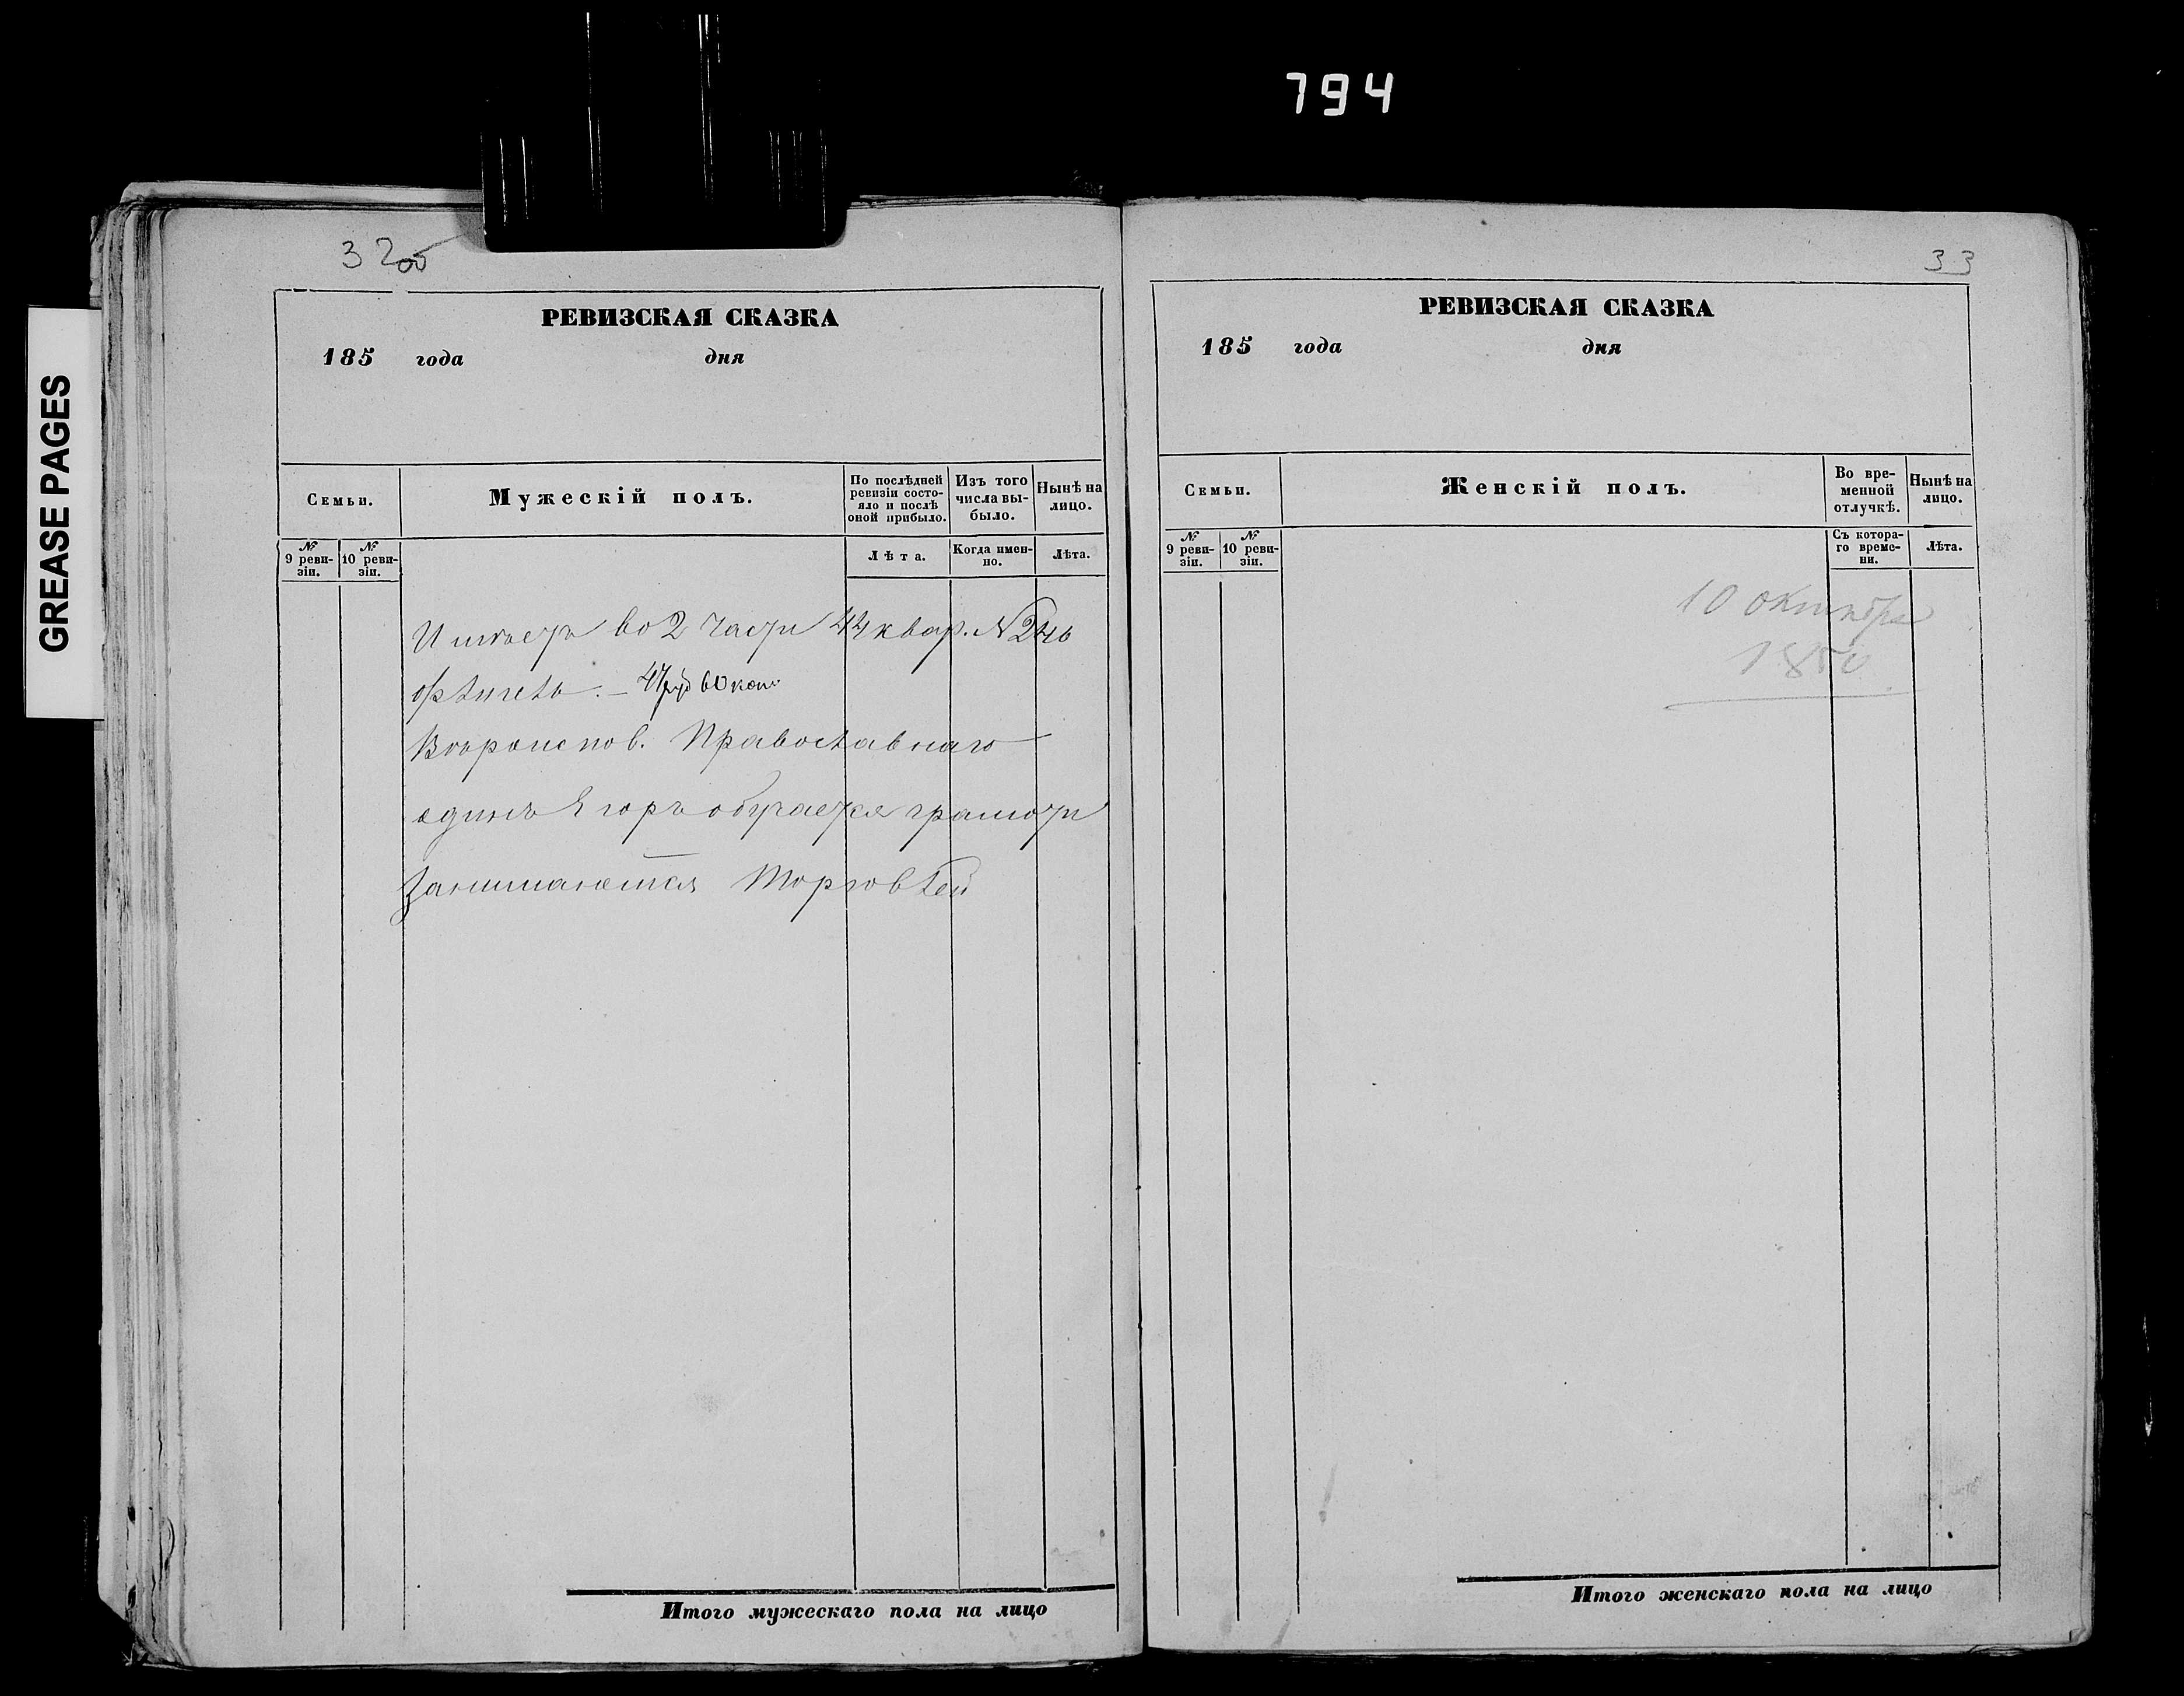 794
GREASE PAGES
32об
РЕВИЗСКАЯ СКАЗКА
185 года дня
Семьи.
Мужескій полъ.
По послѣдней
ревизіи состо-
яло и послѣ
оной прибыло.
Изъ того
числа вы-
было.
Нынѣ на
лицо.
№
9 реви-
зіи.
№
10 реви-
зіи.
Лѣта.
Когда имен-
но.
Лѣта.
Имѣетъ во 2 части 44 квар. №
флигель. — руб 60 коп.
Вѣроиспов. Православнаго
единъ Егоръ обучается грамоти
Занимаются Торговлей
Итого мужескаго пола на лицо
33
РЕВИЗСКАЯ СКАЗКА
185 года дня
Семьи.
Женскій полъ.
Во вре-
менной
отлучкѣ.
Нынѣ на
лицо.
№
9 реви-
зіи.
№
10 реви-
зіи.
Съ котора-
го време-
ни.
Лѣта.
10 октября
1850
Итого женскаго пола на лицо